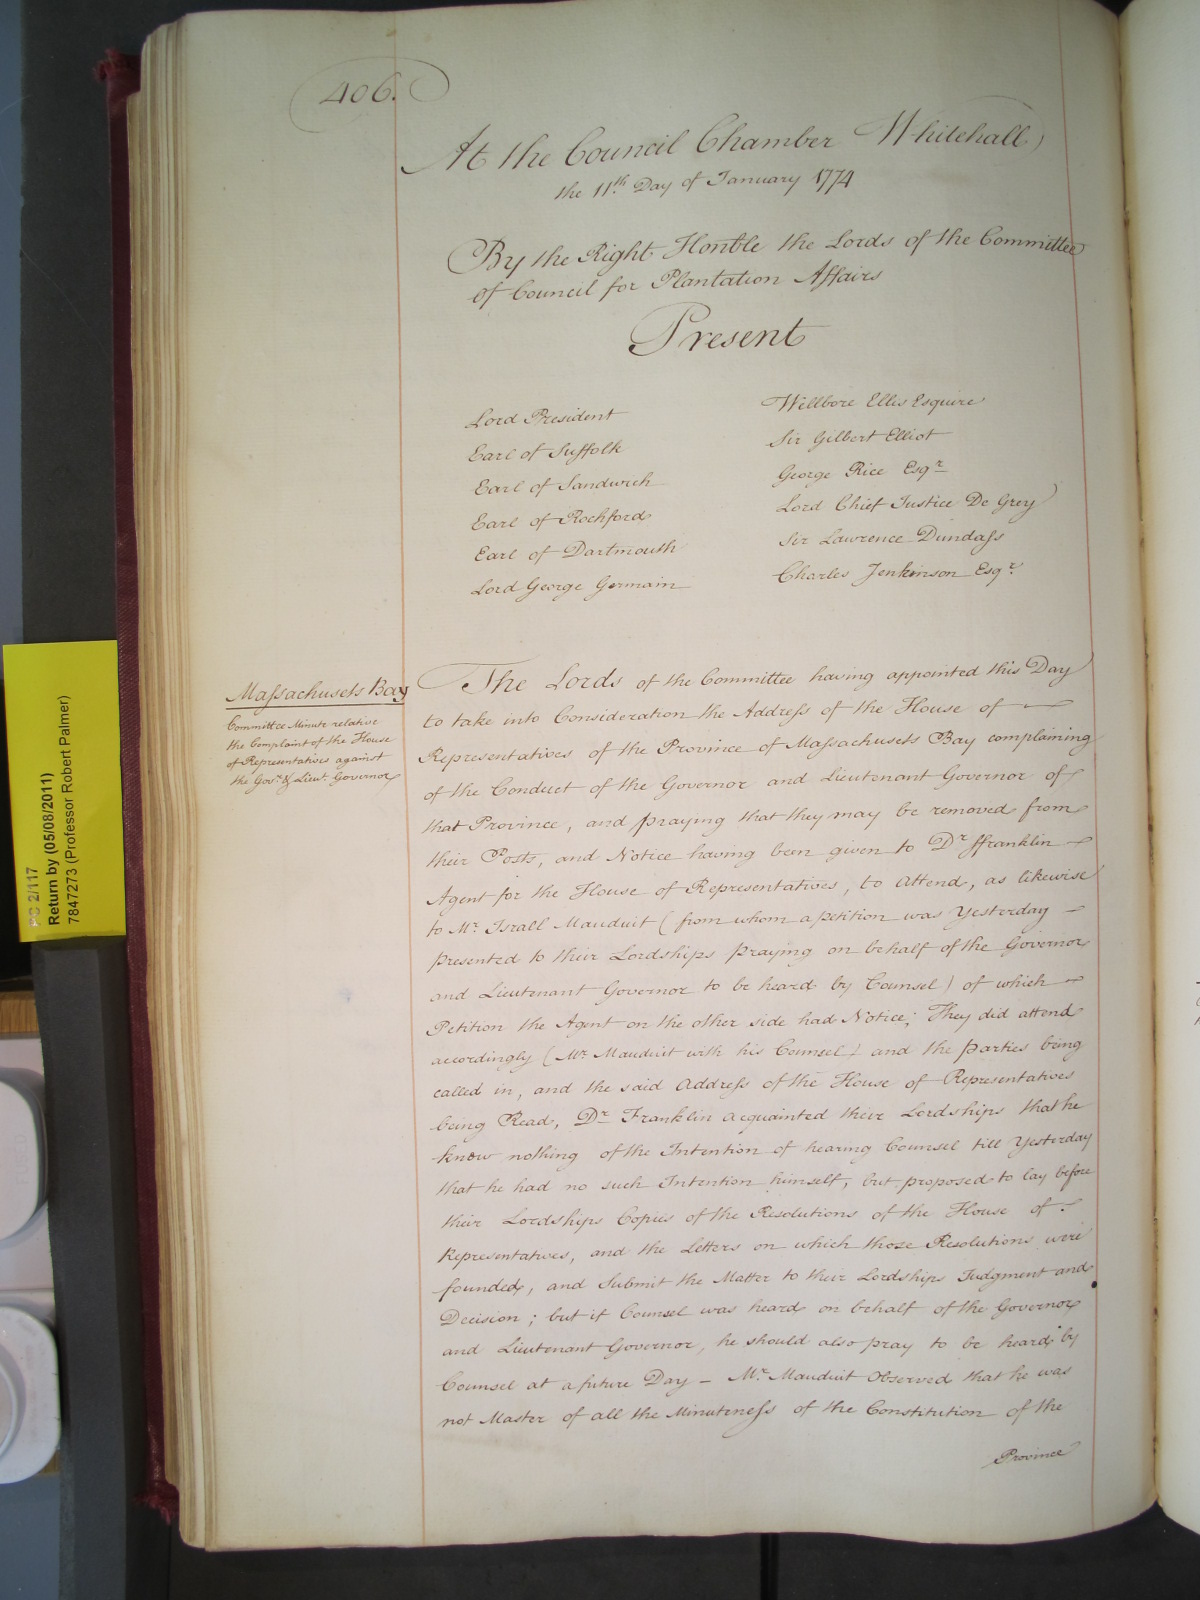 406.
At the Council Chamber Whitehall
the 11th Day of January 1774
By the Right Honble the Lords of the Committee
of Council for Plantation Affairs
Present
Lord President
Earl of Suffolk
Earl of Sandwich
Earl of Rochford
Earl of Dartmouth
Lord George Germain
Wellbore Ellis Esquire
Sir Gilbert Elliot
George Rice Esqr
Lord Chief Justice De Grey
Sir Lawrence Dundass
Charles Jenkinson Esqr
Massachusets Bay
Committee Minute relative
the Complaint of the House
of Representatives against
the Govr. & Lieut. Governor
The Lords of the Committee having appointed this Day
to take into Consideration the Address of the House of
Representatives of the Province of Massachusets Bay complaining
of the Conduct of the Governor and Lieutenant Governor of
that Province, and praying that they may be removed from
their Posts, and Notice having been given to Dr. ffranklin
Agent for the House of Representatives, to attend, as likewise
to Mr. Israll Mauduit (from whom a petition was Yesterday
presented to their Lordships praying on behalf of the Governor
and Lieutenant Governor to be heard by Counsel) of which
Petition the Agent on the other side had Notice; They did attend
accordingly (Mr. Mauduit with his Counsel) and the parties being
called in, and the said Address of the House of Representatives
being Read, Dr. Franklin acquainted their Lordships that he
know nothing of the Intention of hearing Counsel till Yesterday
that he had no such Intention himself, but proposed to lay before
their Lordships Copies of the Resolutions of the House of
Representatives, and the Letters on which those Resolutions were
founded, and Submit the Matter to their Lordships Judgment and
Decision; but if Counsel was heard on behalf of the Governor
and Lieutenant Governor, he should also pray to be heard by
Counsel at a future Day - Mr. Mauduit Observed that he was
not Master of all the Minuteness of the Constitution of the
Province
PC 2/117
Return by (05/08/2011)
7847273 (Professor Robert Palmer)